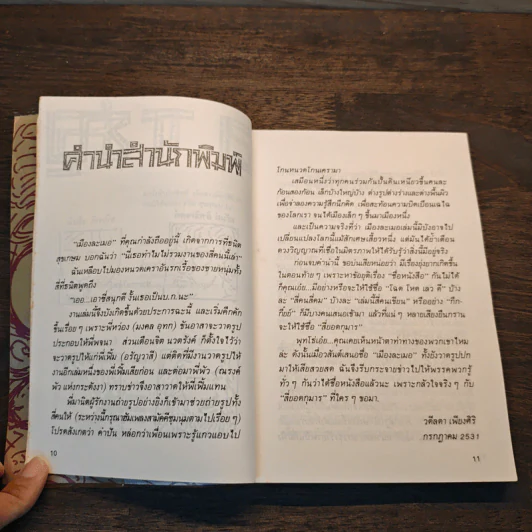 คำนำสำนักพิมพ์
"เมืองละเมอ" ที่คุณกำลังถืออยู่นี้ เกิดจากการที่ชนิด
สุขเกษม บอกฉันว่า "นี่เธอทำไมไม่รวมงานของสี่คนนี้เล่า"
ฉันเหลือบไปมองหนวดเคราอันรกเรื้อของชายหนุ่มทั้ง
สี่ที่ชนิดพูดถึง
"เออ...เอาซิสนุกดี งั้นเธอเป็นบ.ก.นะ"
งานเล่มนี้จึงบังเกิดขึ้นด้วยประการฉะนี้ และเริ่มคึกคัก
ขึ้นเรื่อย ๆ เพราะพี่หว่อง (มงคล อุทก) ขันอาสาจะวาดรูป
ประกอบให้พี่พจนา ส่วนเตือนจิต นวตรังค์ ก็ตั้งใจไว้ว่า
จะวาดรูปให้แก่พี่เพิ่ม (อรัญวาสี) แต่ติดที่มีงานวาดรูปให้
งานอีกเล่มหนึ่งของพี่เพิ่มเสียก่อน และต่อมาพี่พัว (ณรงค์
พัว แห่งกระดังงา) ทราบข่าวจึงอาสาวาดให้พี่เพิ่มแทน
พี่มานิตผู้รักงานถ่ายรูปอย่างยิ่งก็เข้ามาช่วยถ่ายรูปทั้ง
สี่คนให้ (ระหว่างนี้กรุณาฮัมเพลงสามัคคีชุมนุมตามไปเรื่อย ๆ)
โปรดสังเกตว่า คำปัน หล่อกว่าเพื่อนเพราะรู้แกวแอบไป
10
โกนหนวดโกนเครามา
เสมือนหนึ่งว่าทุกคนร่วมกันปั้นดินเหนียวขึ้นคนละ
ก้อนสองก้อน เล็กบ้างใหญ่บ้าง ต่างรูปต่างร่างและต่างพื้นผิว
เพื่อจำลองความรู้สึกนึกคิด เพื่อสะท้อนความบิดเบือนเฉไฉ
ของโลกเรา จนได้เมืองเล็ก ๆ ขึ้นมาเมืองหนึ่ง
และเป็นความจริงที่ว่า เมืองละเมอเล่มนี้มิบังอาจไป
เปลี่ยนแปลงโลกนี้แม้สักเศษเสี้ยวหนึ่ง แต่มันได้ย้ำเตือน
ดวงวิญญาณที่เชื่อในมิตรภาพให้ได้รับรู้ว่าสิ่งนี้มีอยู่จริง
ก่อนจบคำนำนี้ ขอบ่นเสียหน่อยว่า มีเรื่องยุ่งยากเกิดขึ้น
ในตอนท้าย ๆ เพราะหาข้อยุติเรื่อง "ชื่อหนังสือ" กันไม่ได้
ก็คุณเอ๋ย...มีอย่างหรือจะให้ใช้ชื่อ "โฉด โหด เลว ดี" บ้าง
ละ "สี่คนสี่คม" บ้างละ "เล่มนี้สี่คนเขียน" หรืออย่าง "กึก-
กี๋ยย์" ก็มีบางคนเสนอเข้ามา แล้วที่แน่ ๆ หลายเสียงยืนกราน
จะให้ใช้ชื่อ "สี่ยอดกุมาร"
พุทโธ่เอ๋ย...คุณเคยเห็นหน้าตาท่าทางของพวกเขาไหม
ล่ะ ดังนั้นเมื่อวสันต์เสนอชื่อ "เมืองละเมอ" ทั้งยังวาดรูปปก
มาให้เสียสวยสด ฉันจึงรีบกระจายข่าวไปให้พรรคพวกรู้
ทั่ว ๆ กันว่าได้ชื่อหนังสือแล้วนะ เพราะกลัวใจจริง ๆ กับ
"สี่ยอดกุมาร" ที่ใคร ๆ ขอมา.
วดีลดา เพียงศิริ
กรกฎาคม 2531
11